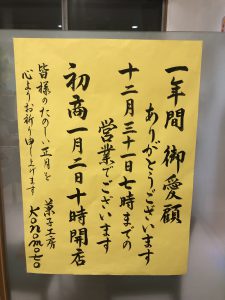 一年間 御愛顧
ありがとうございます
十二月三十一日七時までの
営業でございます
初商一月二日十時開店
皆様のたのしい正月を
心よりお祈り申し上げます
菓子工房
Konomoto